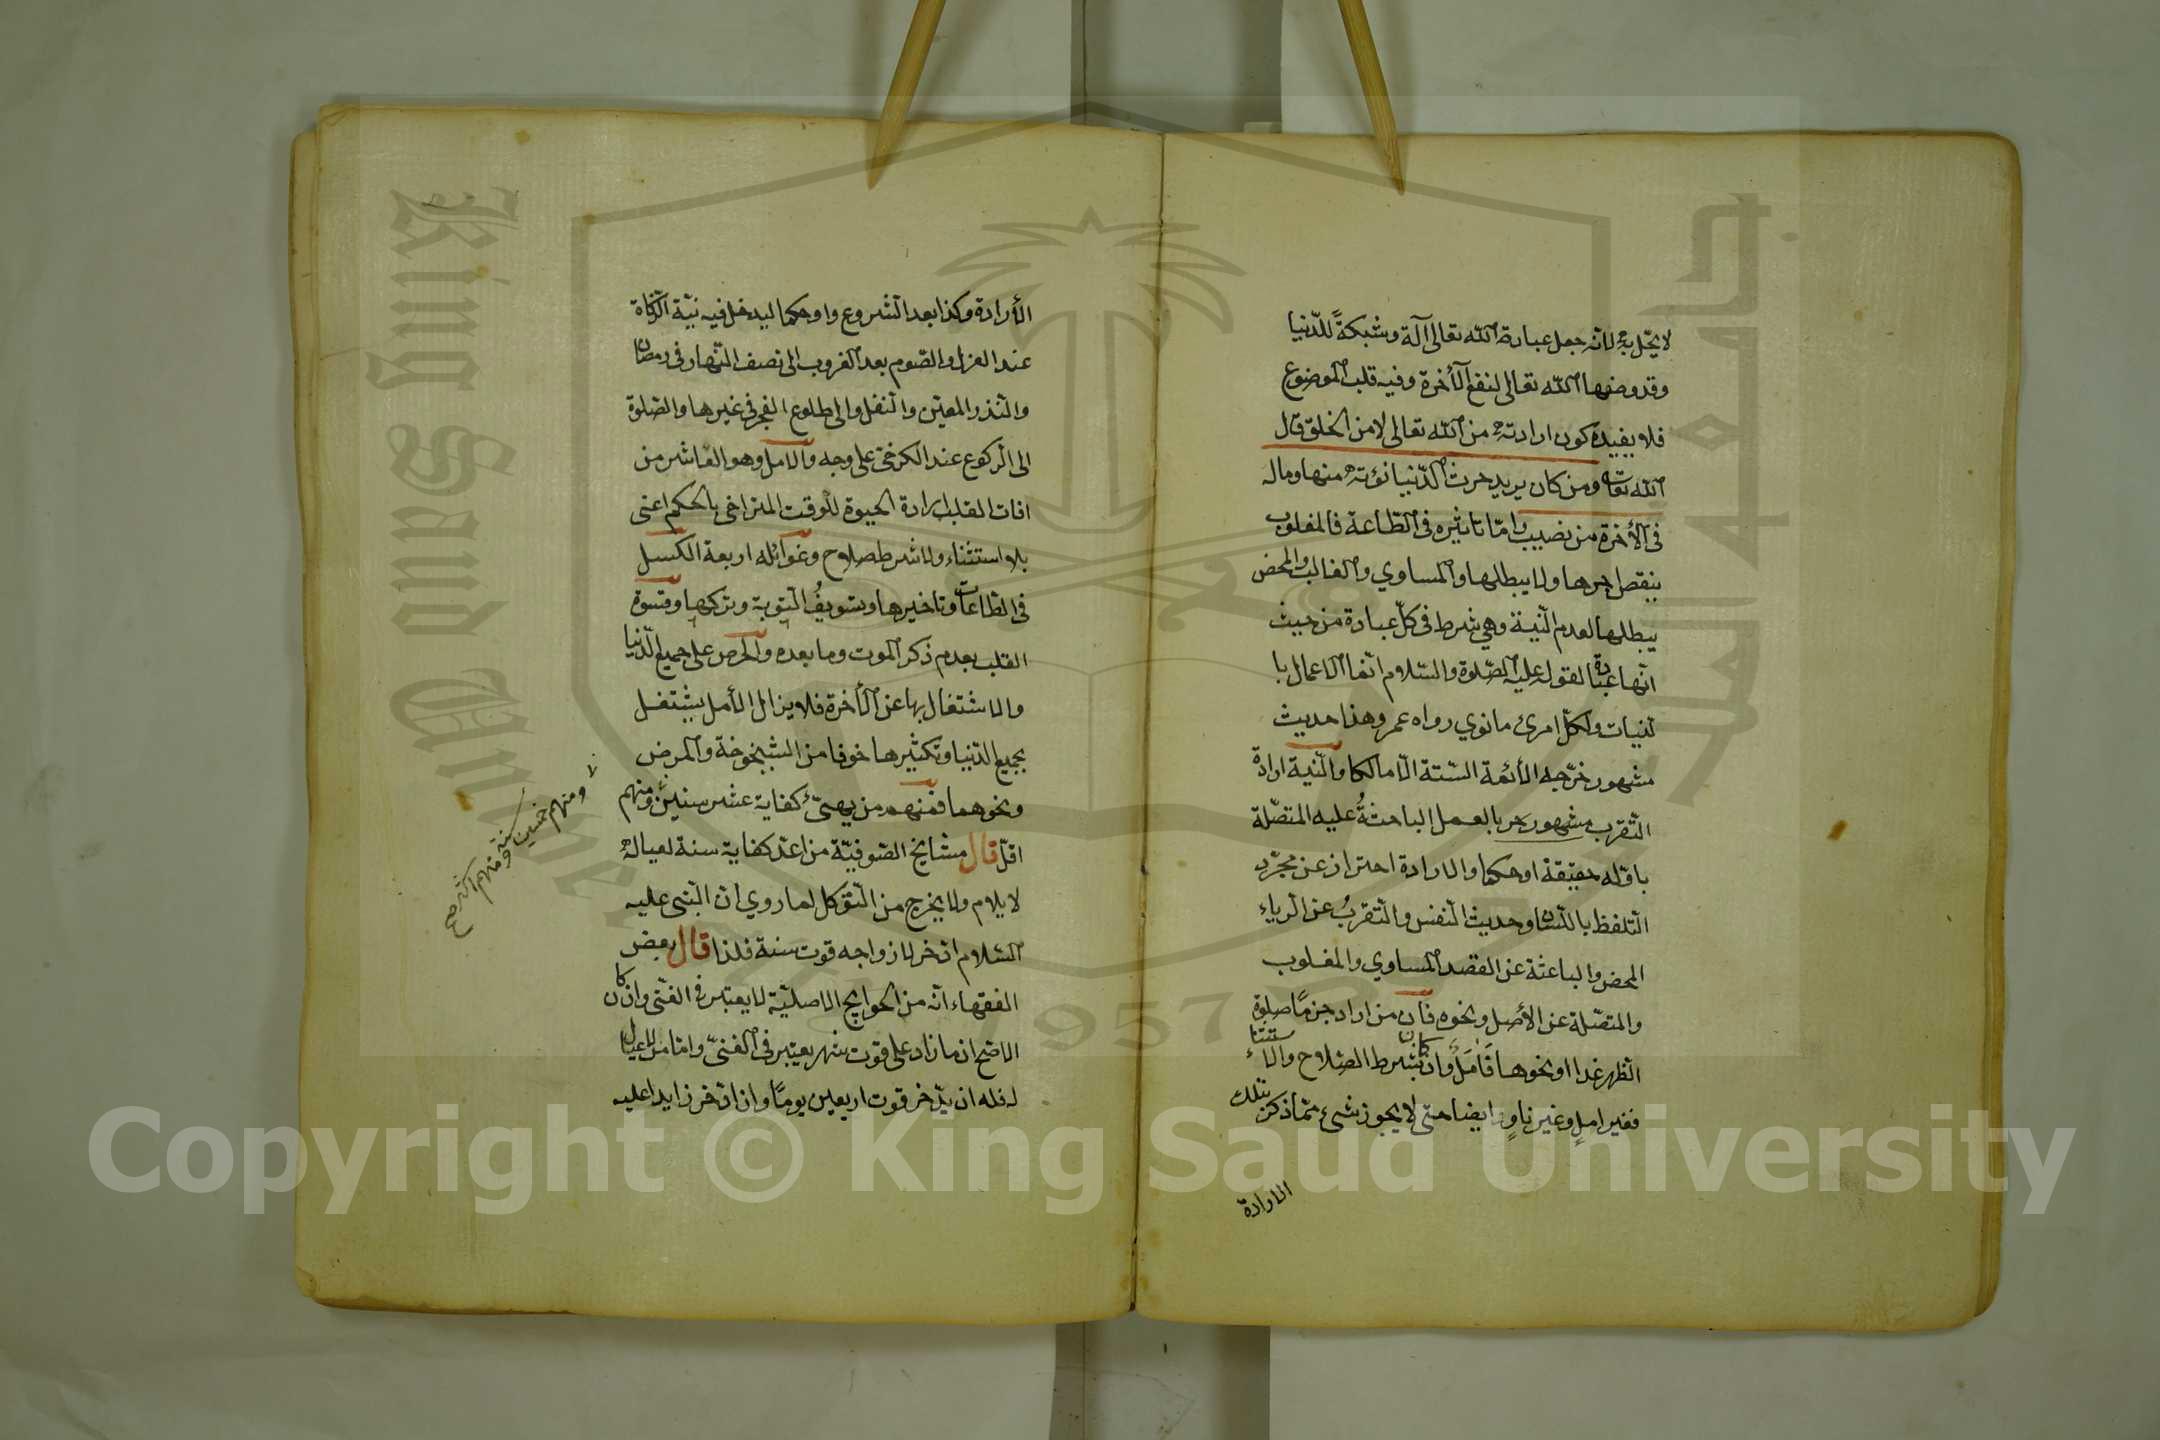 لا يحل به لانه جعل عبادة الله تعالى آلة وشبكة للدنيا
وقد وضعها الله تعالى لنفع الأخرة وفيه قلب الموضوع
فلا يفيده كون ارادته من الله تعالى لا من الخلق قال
الله تعالى ومن كان يريد حرث الدنيا نؤته منها وماله
فى الأخرة من نصيب واما تاثيره فى الطاعة فالمغلوب
ينقص اجرها ولا يبطلها والمساوي والغالب والمحض
يبطلها لعدم النية وهي شرط فى كل عبادة من حيث
انها عبادة لقوله عليه الصلوة والسلام انما الاعمال با
لنيات ولكل امرئ ما نوي رواه عمر وهذا حديث
مشهور خرجه الأئمة الستة الا مالكا والنية ارادة
التقرب بالعمل الباعثة عليه المتصلة
باوله حقيقة او حكما والارادة احتراز عن مجرد
التلفظ باللسان وحديث النفس والتقرب عن الرياء
المحض والباعثة عن القصد المساوي والمغلوب
والمتصلة عن الأمل ونحوه فان من اراد جزما صلوة
الظهر غدا او نحوها فامل وان كان بشرط الصلاح والاستثناء
فغير امل وغير ناو ايضا حتى لا يجوز شئ مما ذكر بتلك
الارادة
الأرادة وكذا بعد الشروع واو حكما ليدخل فيه نية الزكاة
عند العزل والصوم بعد الغروب الى نصف النهار فى رمضان
والنذر المعين والنفل والى طلوع الفجر فى غيرها والصلوة
الى الركوع عند الكرخى على وجه والامل وهو العاشر من
افات القلب ارادة الحيوة للوقت المتراخى بالحكم اعنى
بلا استثناء ولا شرط صلاح وغوائله اربعة الكسل
فى الطاعات وتاخيرها وتسويف التوبة وتركها وقسوة
القلب بعدم ذكر الموت وما بعده والحرص على جميع الدنيا
والاشتغال بها عن الأخرة فلا يزال الأمل يشتغل
بجميع الدنيا وتكثيرها خوفا من الشيخوخة والمرض
ونحوهما فمنهم من يهيئ كفاية عشر سنين ومنهم
اقل قال مشايخ الصوفية من اعد كفاية سنة لعياله
لا يلام ولا يخرج من التوكل لما روي ان النبى عليه
السلام ادخر لازواجه قوت سنة فلذا قال بعض
الفقهاء انه من الحوايج الاصلية لا يعتبر فى الغنى وان كان
الاصح ان ما زاد على قوت شهر يعتبر فى الغنى واما من لا عيال
له فله ان يدخر قوت اربعين يوما وان ادخر زايدا عليه
ومنهم خمسين سنة ومنهم اكثر صح
Copyright © King Saud University
King Saud University
1957